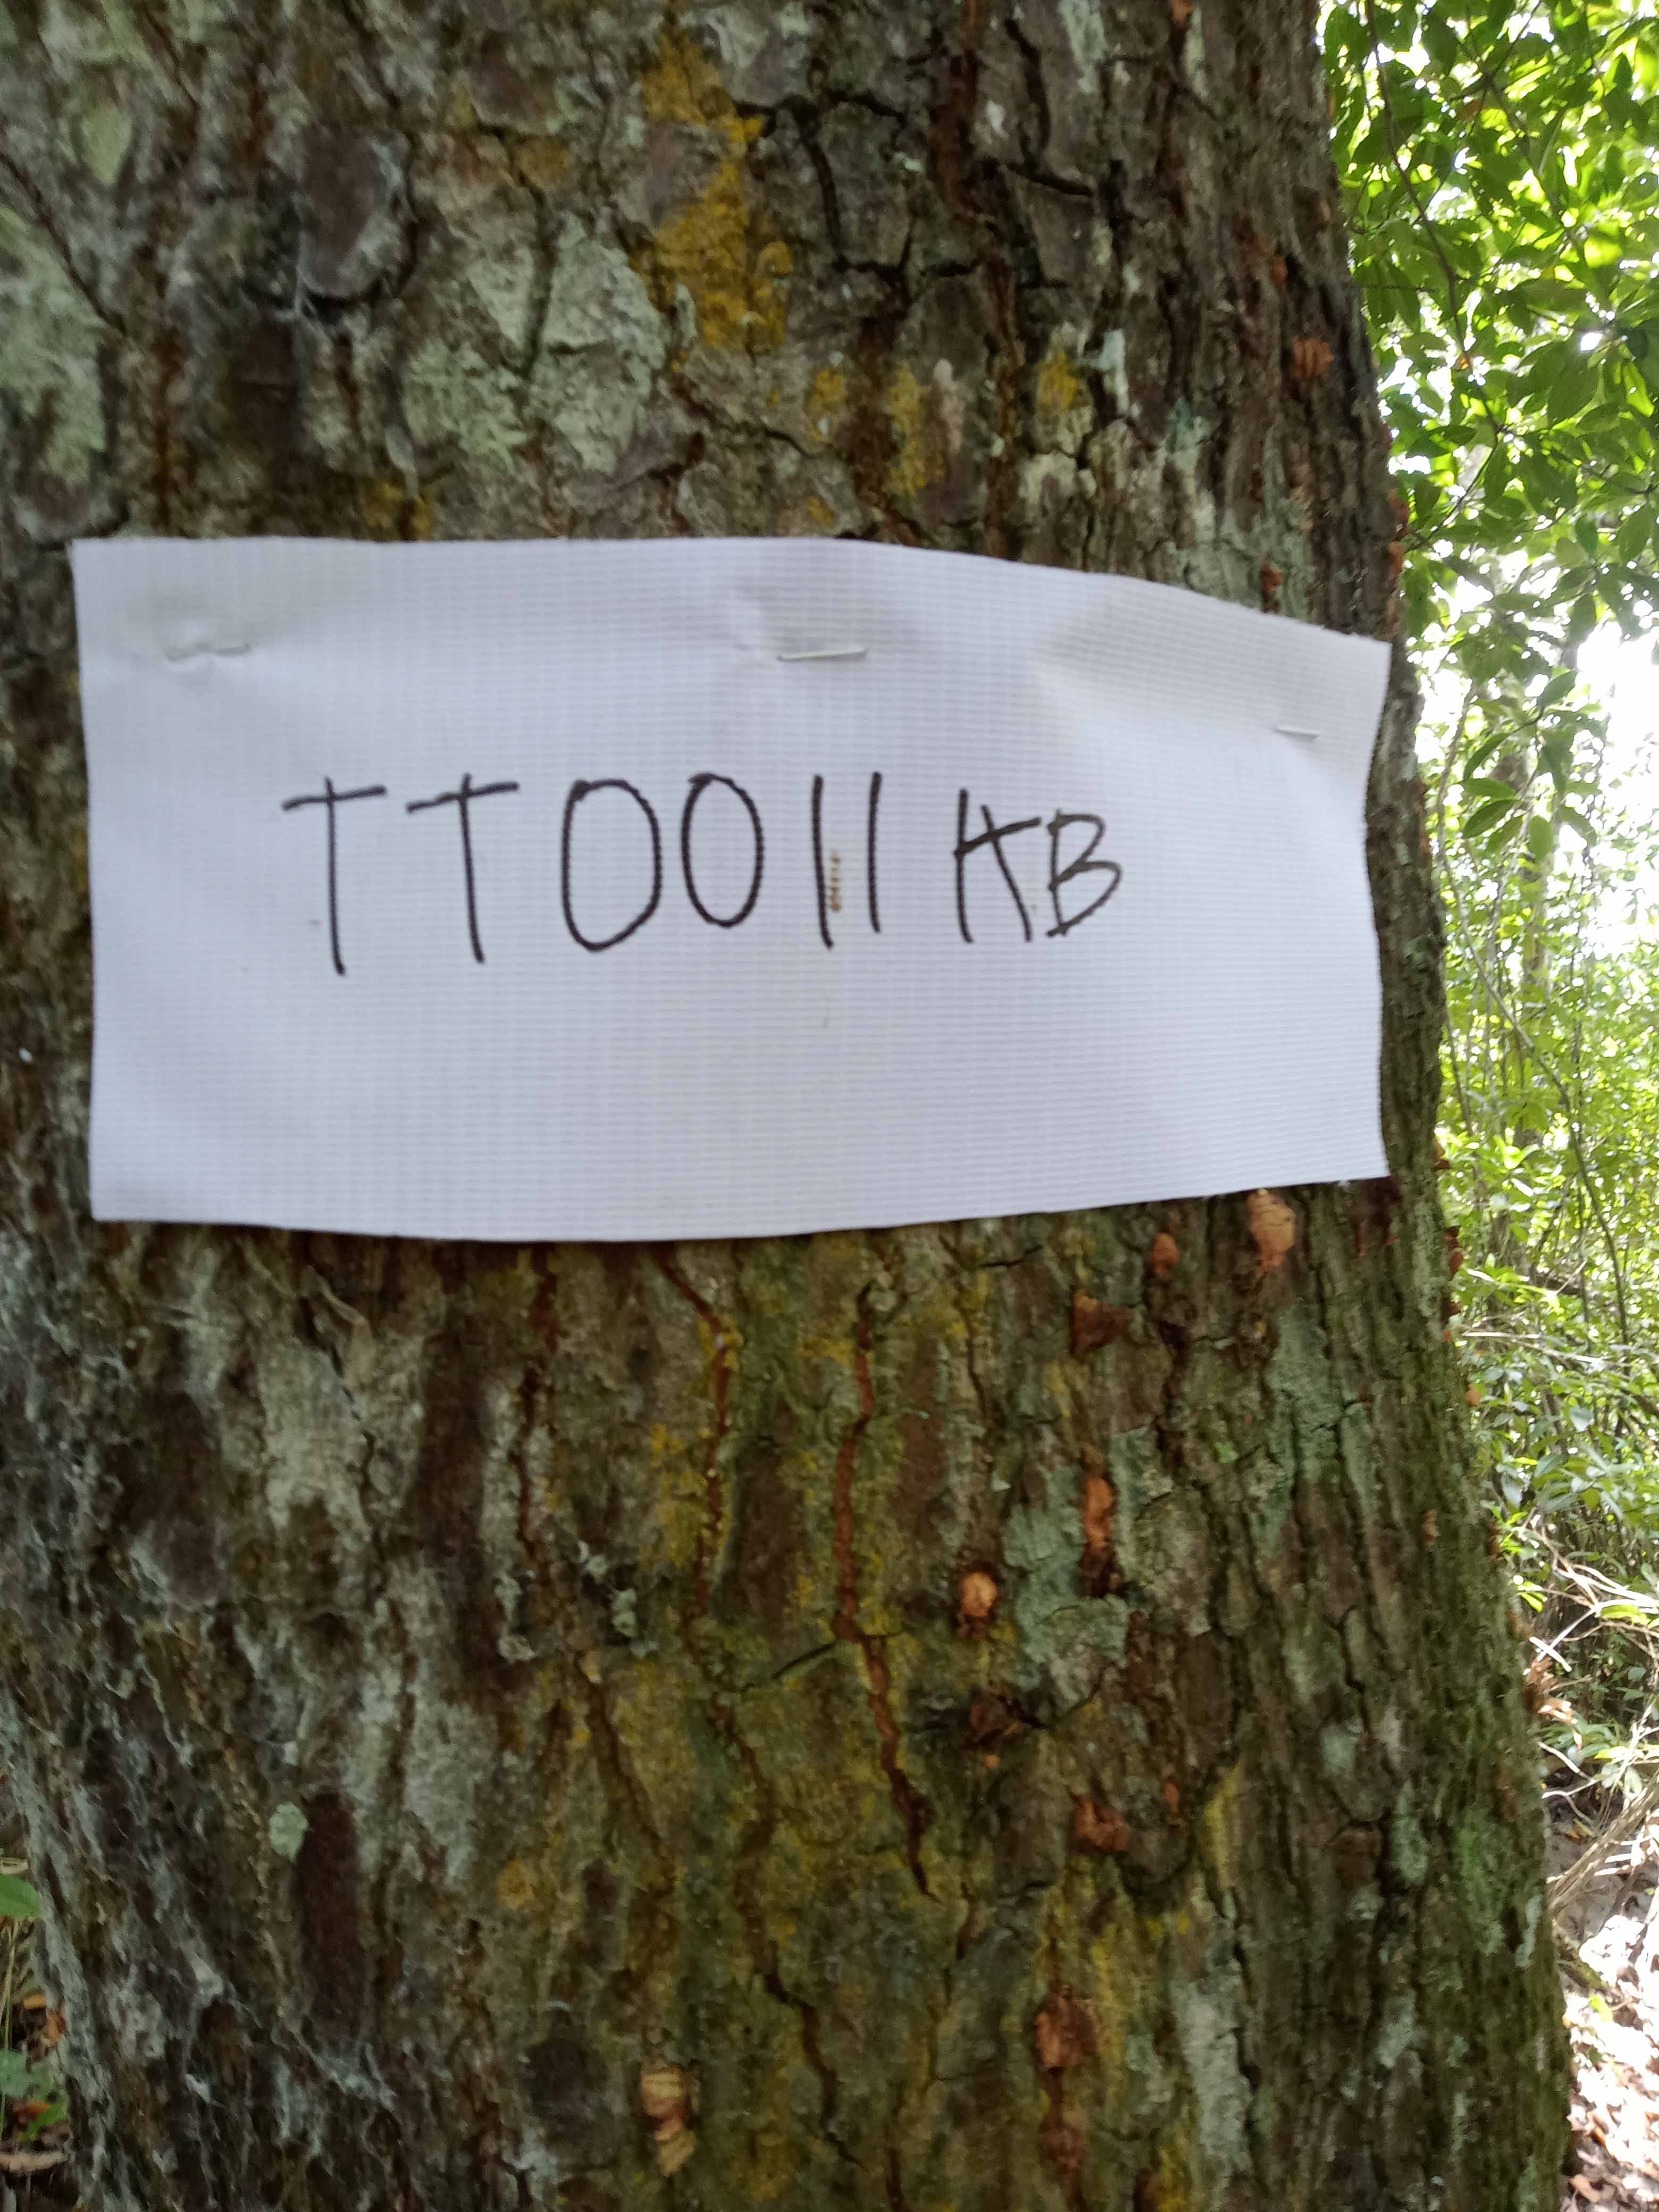 TT0011 KB